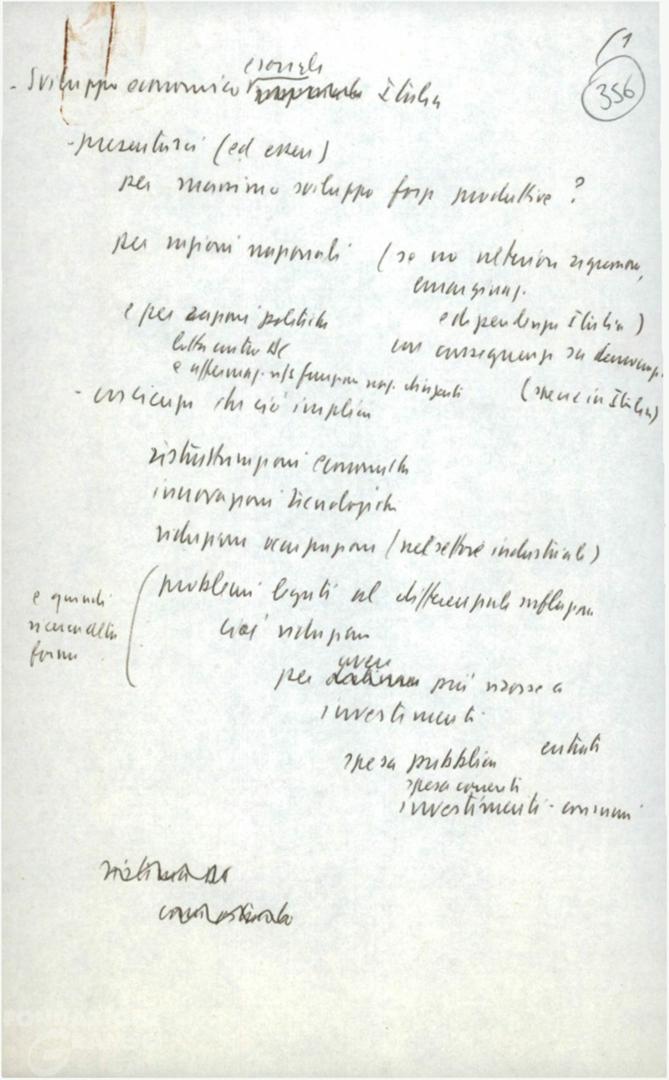 (1
356
- Sviluppo economico Italia
- presentarsi (ed essere)
per massimo sviluppo forze produttive ?
per ragioni nazionali (se no ulteriore
emarginaz.
e per ragioni politiche e dipendenza Italia)
lotta contro DC con conseguenze su democrazia
e affermaz. funzione naz. dirigente (specie in Italia)
- coscienza che ciò implica
ristrutturazioni economiche
innovazioni tecnologiche
riduzioni occupazione (nel settore industriale)
e quindi
ricerca altre
forme
problemi legati al differenziale inflazione
cioè riduzione
per avere più risorse a
investimenti
spesa pubblica entrate
spesa correnti
investimenti - consumi
FONDAZIONE